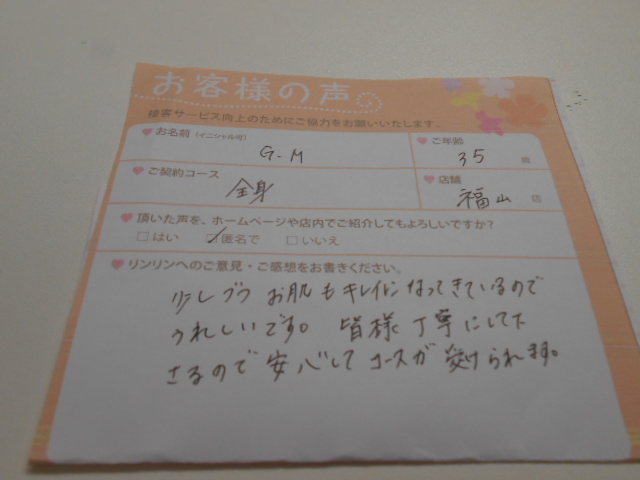 お客様の声
接客サービス向上のためにご協力をお願いいたします。
お名前 (イニシャル可)
G.M
ご年齢
35 歳
ご契約コース
全身
店舗
福山 店
頂いた声を、ホームページや店内でご紹介してもよろしいですか?
□はい ☑匿名で □いいえ
リンリンへのご意見・ご感想をお書きください。
少しづつ お肌もキレイになってきているので
うれしいです。 皆様丁寧にして下
さるので安心してコースが受けられます。